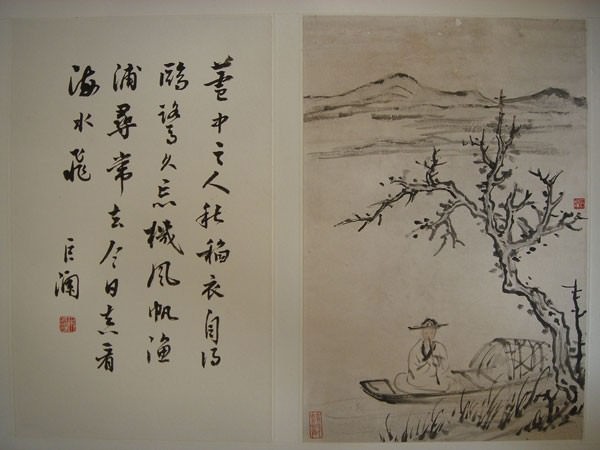 蘆中之人稻衣自得
鷗鷺久忘機風帆漁
浦尋常去今日真看
海水飛
瀾